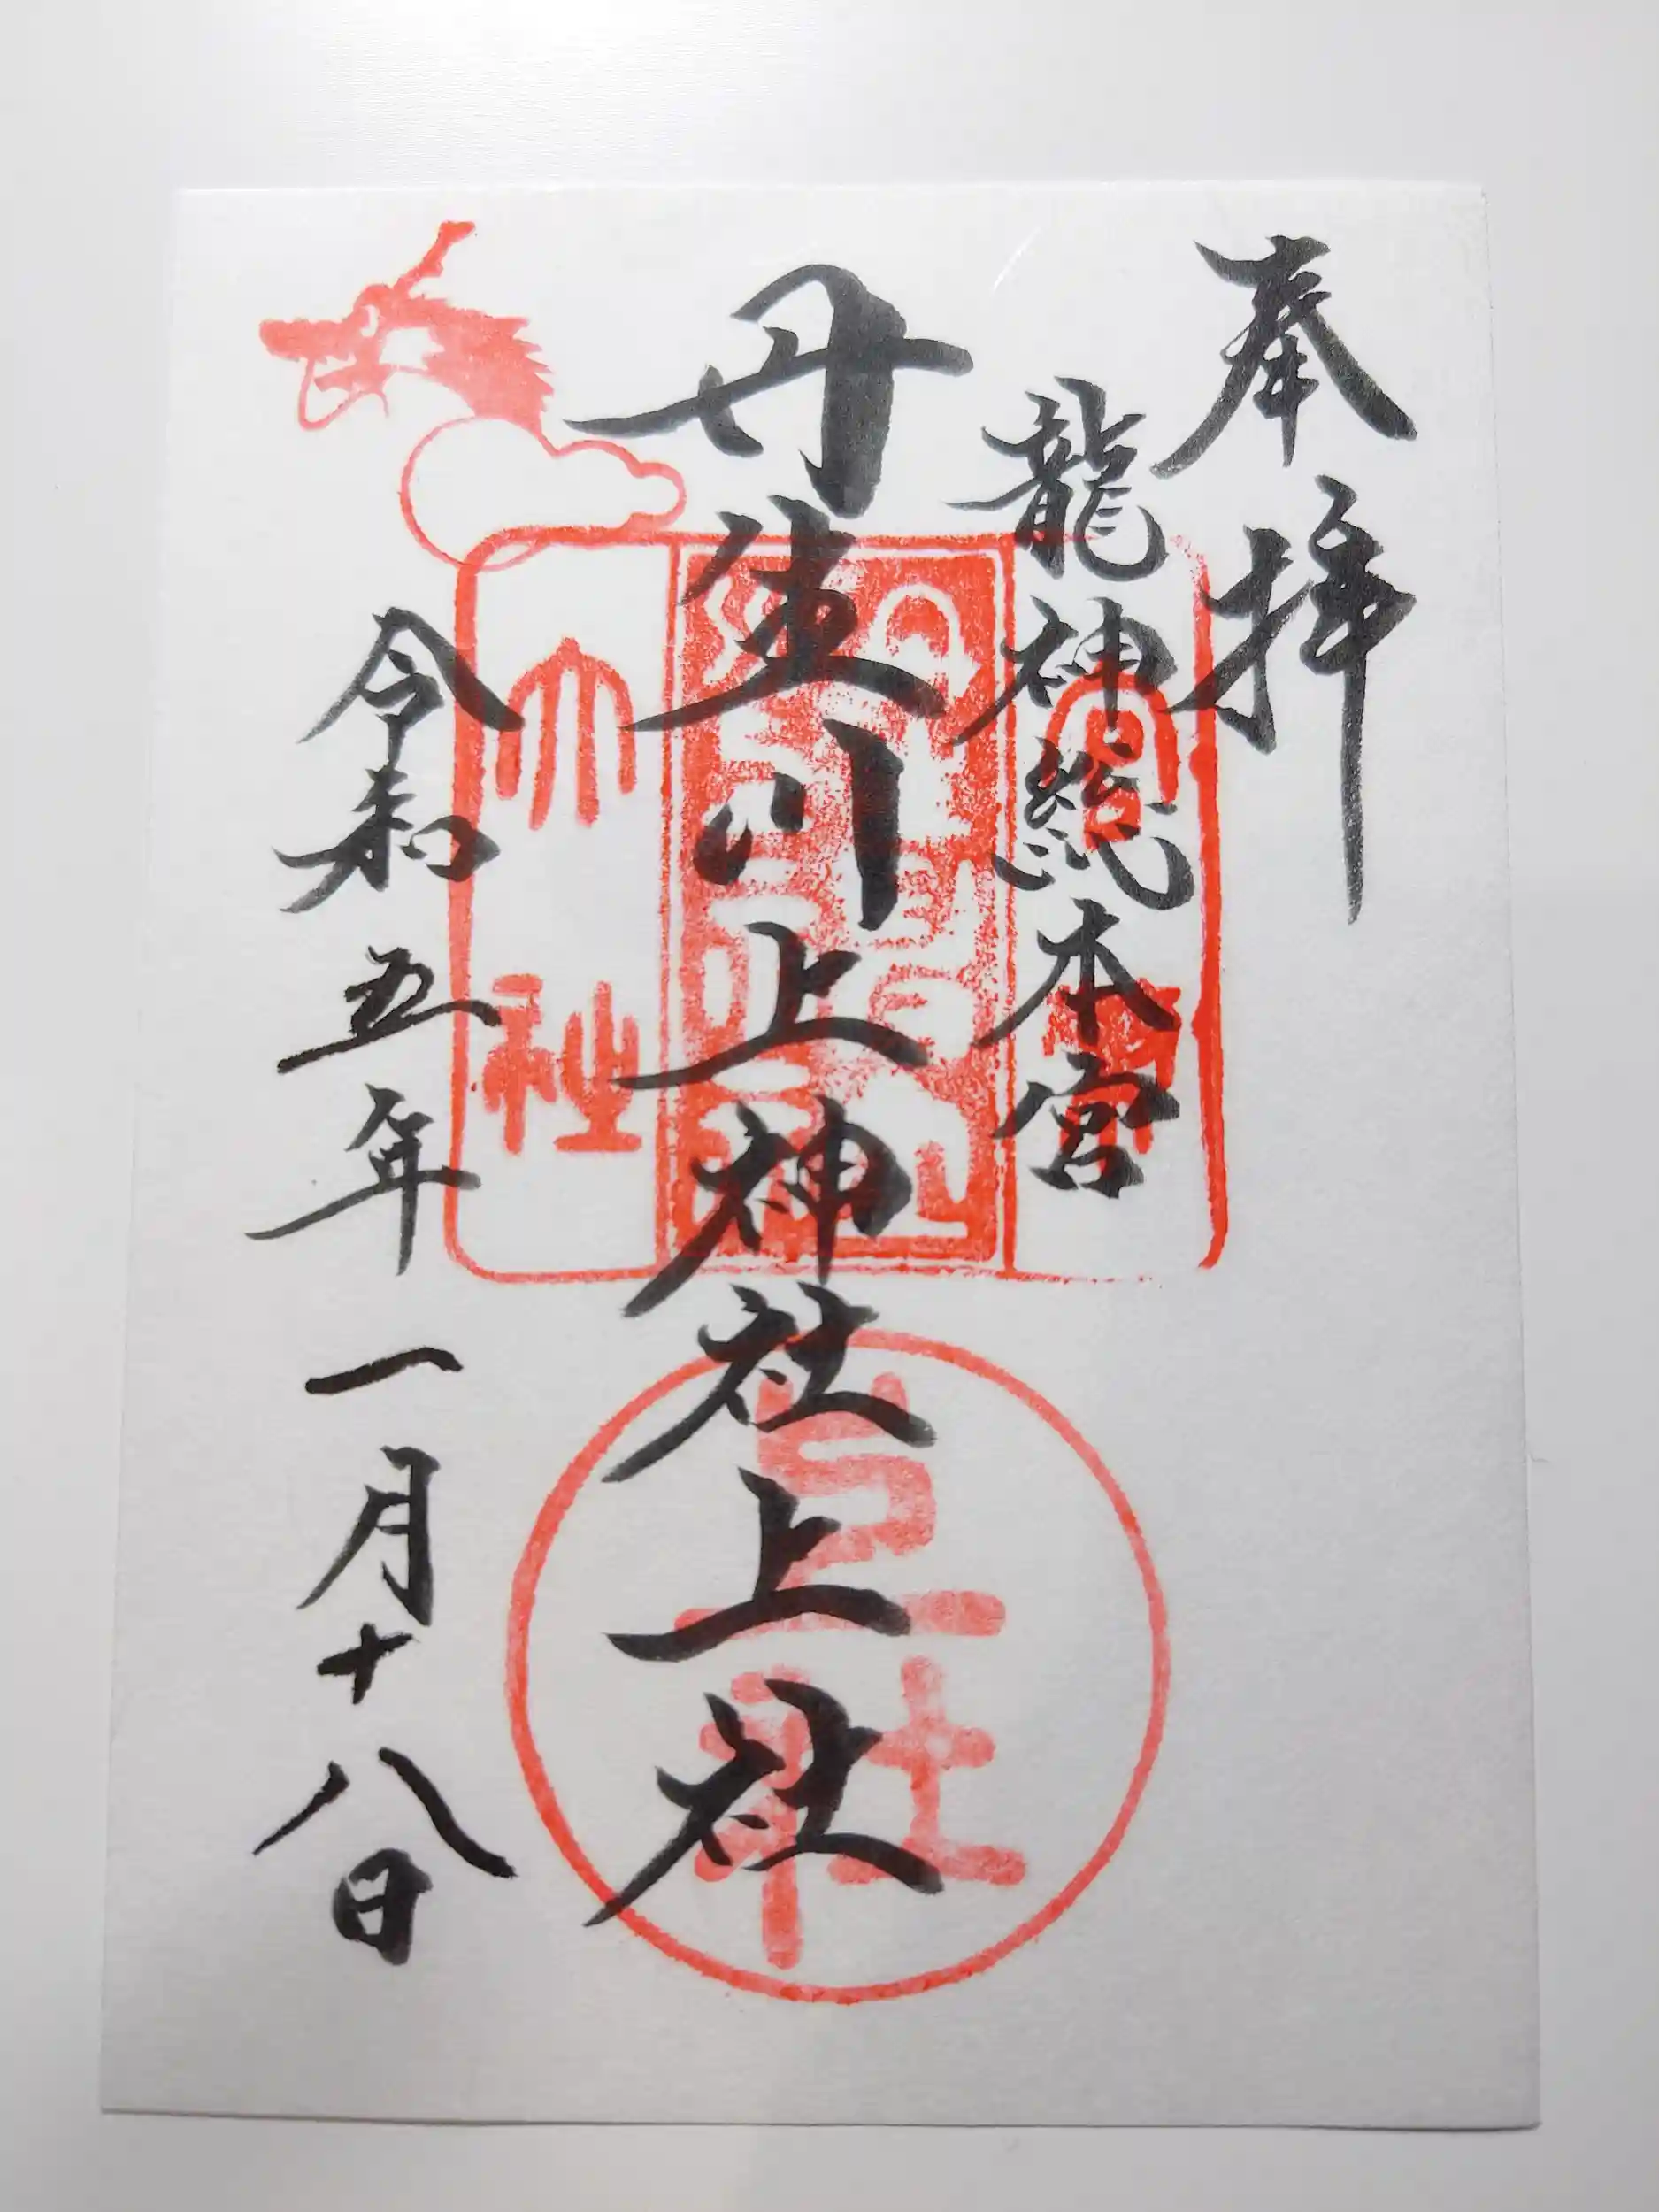 奉拝
龍神總本宮
丹生川上神社上社
令和五年一月十八日